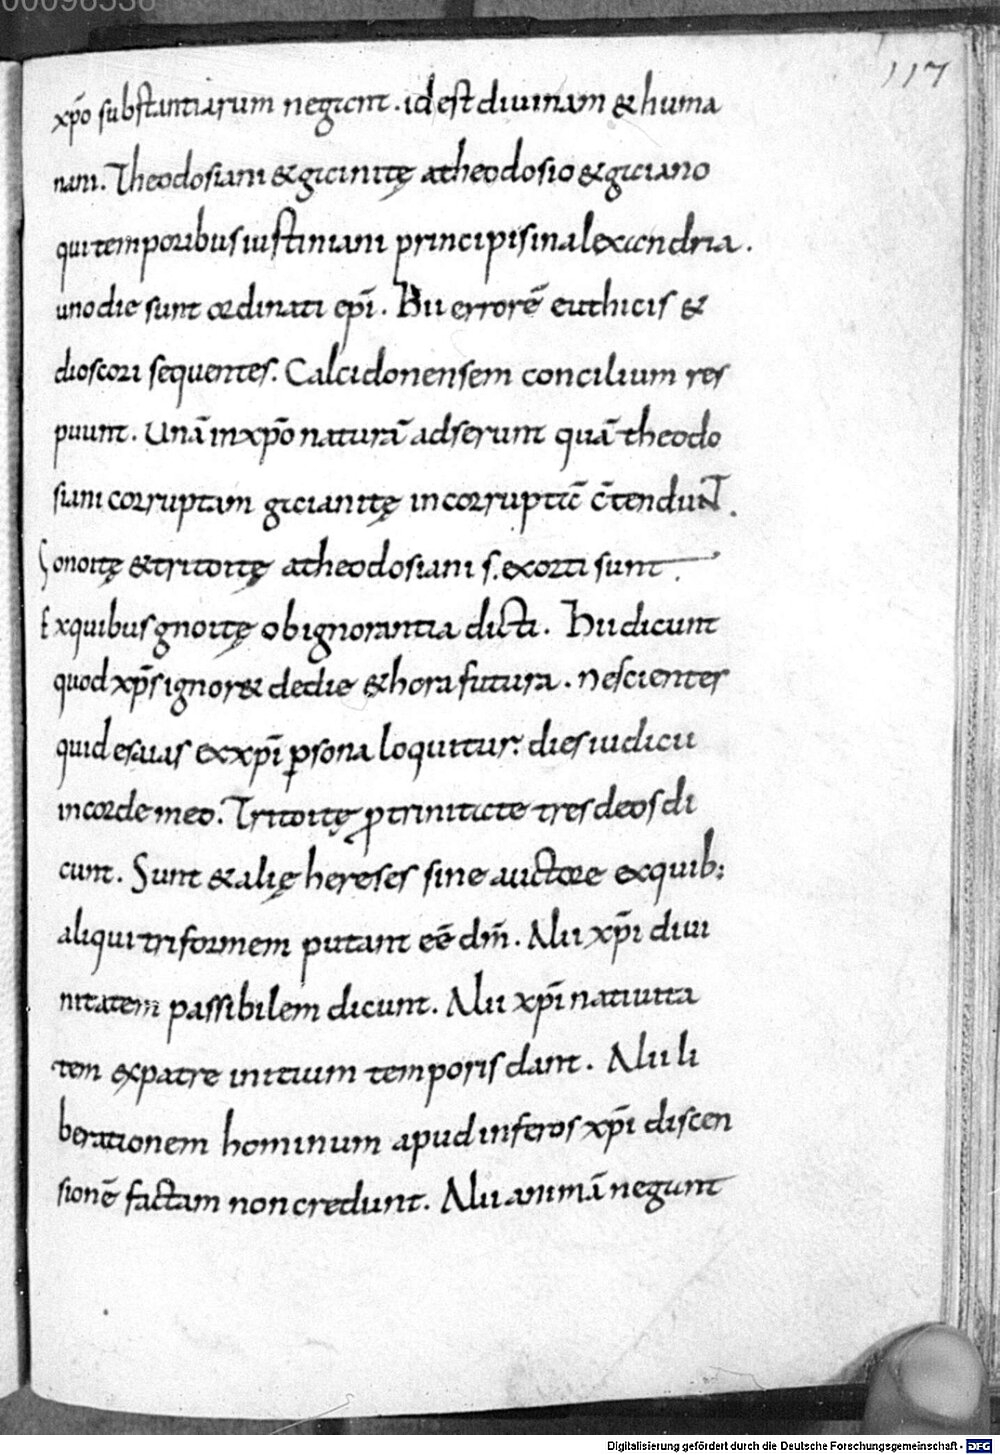 00096538
117
xp̄o substantiarum negant. id est diuinam & huma
nam. Theodosiani & gaianitę a theodosio & gaiano
qui temporibus iustiniani principis in alexandria.
uno die sunt ordinati ep̄i. Hii errorē euthicis &
dioscori sequentes. Calcidonensem concilium res
puunt. Unā in xp̄o naturā adserunt quā theodo
siani corruptam gaianitę incorruptā c̄tendunt.
Sonoitę & tritoitę a theodosiani s. exorti sunt.
Ex quibus gnoitę ob ignorantia dicti. Hii dicunt
quod xp̄s ignor& de die & hora futura. nescientes
quid esaias ex xp̄i p̱sona loquitur. dies iudicii
in corde meo. Tritoitę ꝓ trinitate tres deos di
cunt. Sunt & alię hereses sine auctore ex quib;
aliqui triformem putant eē dm̄. Alii xp̄i diui
nitatem passibilem dicunt. Alii xp̄i natiuita
tem ex patre initium temporis dant. Alii li
berationem hominum apud inferos xp̄i discen
sionē factam non credunt. Alii animā negant
Digitalisierung gefördert durch die Deutsche Forschungsgemeinschaft - DFG